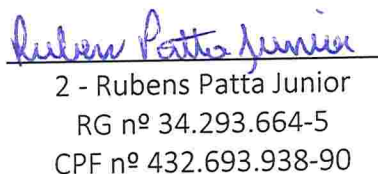 Rubens Patta Junior
2 - Rubens Patta Junior
RG nº 34.293.664-5
CPF nº 432.693.938-90